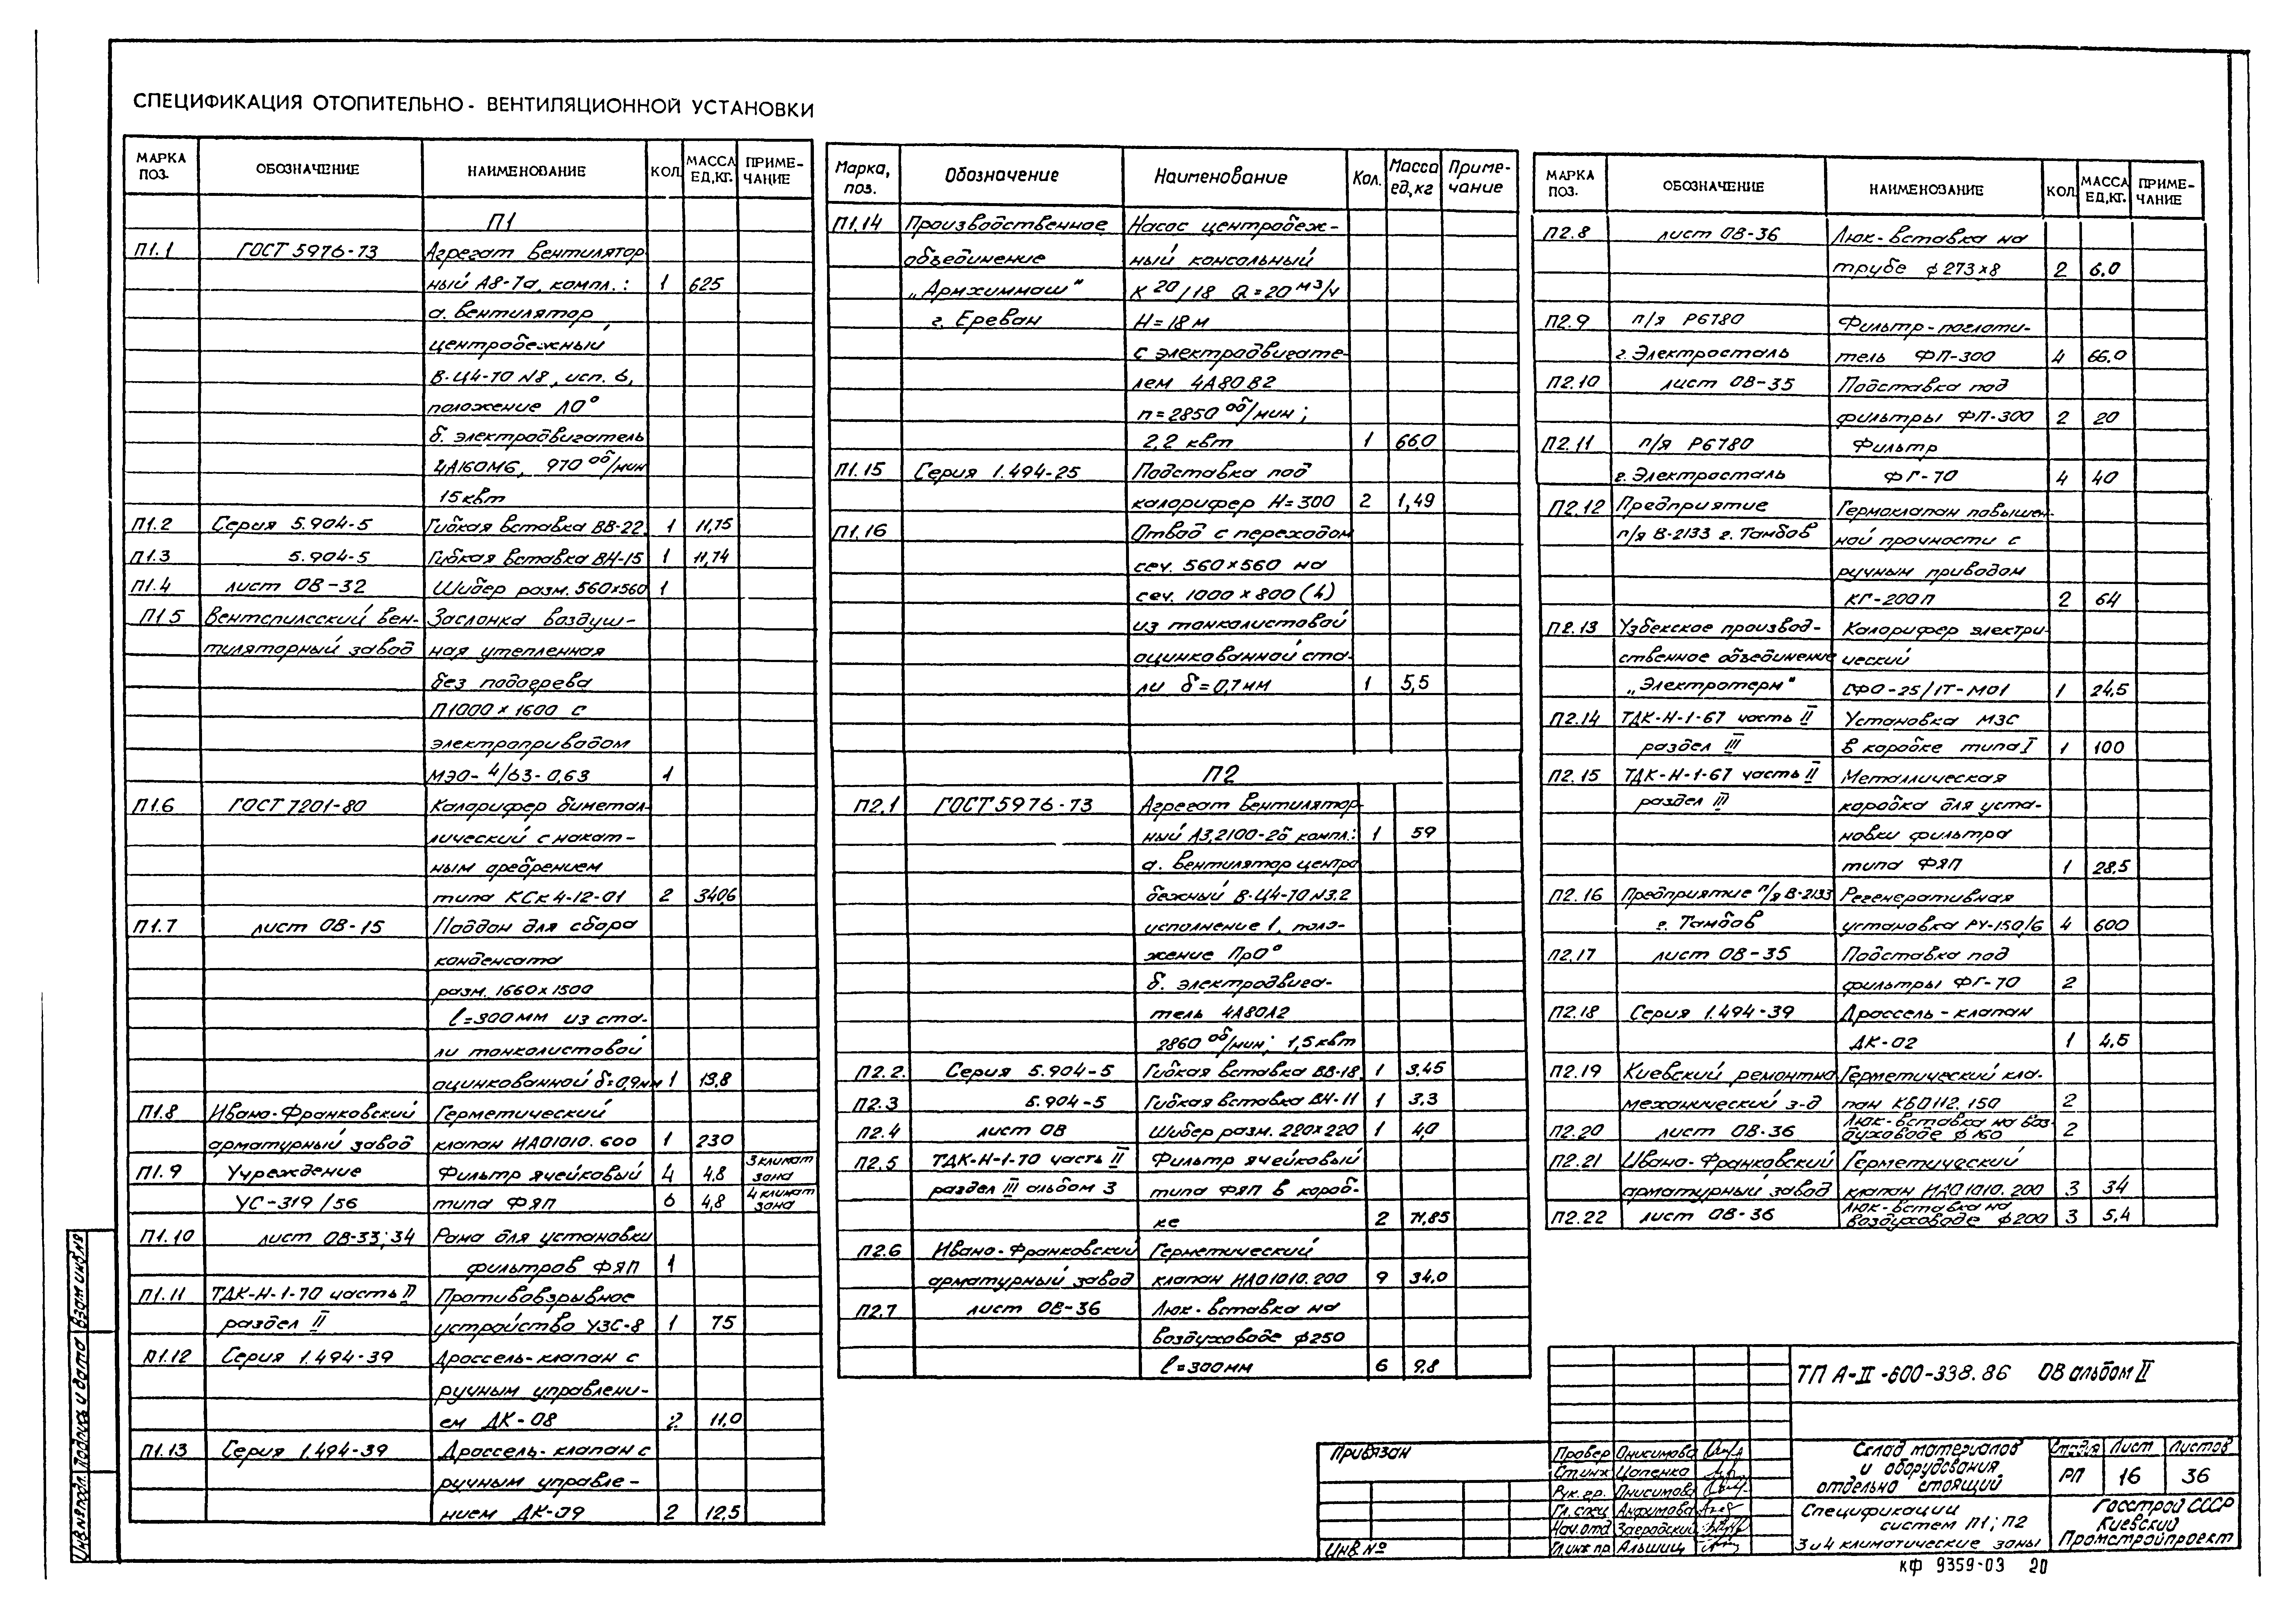 СПЕЦИФИКАЦИЯ ОТОПИТЕЛЬНО- ВЕНТИЛЯЦИОННОЙ УСТАНОВКИ
МАРКА ПОЗ. ОБОЗНАЧЕНИЕ НАИМЕНОВАНИЕ КОЛ. МАССА ЕД,КГ. ПРИМЕ-ЧАНИЕ
П1
П1.1 ГОСТ 5976-73 Агрегат вентилятор-
ный А8-7а, компл.: 1 625
а. вентилятор
центробежный
В-Ц4-70 N8, исп. 6,
положение Л0°
б. электродвигатель
4А160М6, 970 об/мин
15 квт
П1.2 Серия 5.904-5 Гибкая вставка ВВ-22 1 11,75
П1.3 5.904-5 Гибкая вставка ВН-15 1 11,74
П1.4 лист ОВ-32 Шибер разм. 560х560 1
П1.5 Вентспилсский вен- Заслонка воздуш-
тиляторный завод ная утепленная
без подогрева
П1000 х 1600 с
электроприводом
МЭО-4/63-0,63 1
П1.6 ГОСТ 7201-80 Калорифер биметал-
лический с накат-
ным оребрением
типа КСк4-12-01 2 340,6
П1.7 лист ОВ-15 Поддон для сбора
конденсата
разм. 1660 х 1500
l=300мм из ста-
ли тонколистовой
оцинкованной δ=0,9мм 1 13,8
П1.8 Ивано-Франковский Герметический
арматурный завод клапан ИА01010.600 1 230
П1.9 Учреждение Фильтр ячейковый 4 4,8 3 климат зона
УС-319/56 типа ФЯП 6 4,8 4 климат зона
П1.10 лист ОВ-33;34 Рама для установки
фильтров ФЯП 1
П1.11 ТДК-Н-1-70 часть II Противовзрывное
раздел II устройство УЗС-8 1 75
П1.12 Серия 1.494-39 Дроссель-клапан с
ручным управлени-
ем ДК-08 2 11,0
П1.13 Серия 1.494-39 Дроссель-клапан с
ручным управле-
нием ДК-09 2 12,5
Марка, поз. Обозначение Наименование Кол. Масса ед,кг Приме-чание
П1.14 Производственное Насос центробеж-
объединение ный консольный
"Армхиммаш" К 20/18 Q=20 м3/ч
г. Ереван Н=18 м
с электродвигате-
лем 4А80В2
n=2850 об/мин;
2,2 квт 1 66,0
П1.15 Серия 1.494-25 Подставка под
калорифер Н=300 2 1,49
П1.16 Отвод с переходом
сеч. 560х560 на
сеч. 1000 х 800 (h)
из тонколистовой
оцинкованной ста-
ли δ=0,7мм 1 5,5
П2
П2.1 ГОСТ 5976-73 Агрегат вентилятор-
ный А3,2100-2б компл.: 1 59
а. вентилятор центро
бежный В-Ц4-70 N3.2
исполнение 1, поло-
жение Пр0°
б. электродвига-
тель 4А80А2
2860 об/мин; 1,5 квт
П2.2. Серия 5.904-5 Гибкая вставка ВВ-18 1 3,45
П2.3 5.904-5 Гибкая вставка ВН-11 1 3.3
П2.4 лист ОВ Шибер разм. 220х220 1 4,0
П2.5 ТДК-Н-1-70 часть II Фильтр ячейковый
раздел III альбом 3 типа ФЯП в короб-
ке 2 71,85
П2.6 Ивано-Франковский Герметический
арматурный завод клапан ИА01010.200 9 34,0
П2.7 лист ОВ-36 Люк-вставка на
воздуховоде ф250
l=300мм 6 9.8
МАРКА ПОЗ. ОБОЗНАЧЕНИЕ НАИМЕНОВАНИЕ КОЛ. МАССА ЕД,КГ. ПРИМЕ-ЧАНИЕ
П2.8 лист ОВ-36 Люк-вставка на
трубе ф 273х8 2 6.0
П2.9 п/я Р6780 Фильтр-поглоти-
г. Электросталь тель ФП-300 4 66.0
П2.10 лист ОВ-35 Подставка под
фильтры ФП-300 2 20
П2.11 п/я Р6780 Фильтр
г. Электросталь ФГ-70 4 40
П2.12 Предприятие Гермоклапан повышен-
п/я В-2133 г. Тамбов ной прочности с
ручным приводом
КГ-200П 2 64
П2.13 Узбекское производ- Калорифер электри-
ственное объединение ческий
"Электротерм" СФО-25/1Т-М01 1 24,5
П2.14 ТДК-Н-1-67 часть II Установка МЗС
раздел III в коробке типа I 1 100
П2.15 ТДК-Н-1-67 часть II Металлическая
раздел III коробка для уста-
новки фильтра
типа ФЯП 1 28,5
П2.16 Предприятие п/я В-2133 Регенеративная
г. Тамбов установка РУ-150/6 4 600
П2.17 лист ОВ-35 Подставка под
фильтры ФГ-70 2
П2.18 Серия 1.494-39 Дроссель-клапан
ДК-02 1 4,5
П2.19 Киевский ремонтно Герметический кла-
механический з-д пан КБ0112.150 2
П2.20 лист ОВ-36 Люк-вставка на воз-духоводе ф 160 2
П2.21 Ивано-Франковский Герметический
арматурный завод клапан ИА01010.200 3 34
П2.22 лист ОВ-36 Люк-вставка на воздуховоде ф200 3 5,4
ТП А-II-600-338.86 ОВ альбом II
Привязан
Инв №
Провер Онисимова
Ст.инж Цапенко
Рук.гр. Онисимова
Гл.спец Анфимова
Нач.отд Загродский
Гл.инж пр. Альшиц
Склад материалов
и оборудования
отдельно стоящий
Стадия Лист Листов
РП 16 36
Спецификации
систем П1; П2
3 и 4 климатические зоны
Госстрой СССР
Киевский
Промстройпроект
КФ 9359-03 20
Инв № подл. Подпись и дата Взам инв №